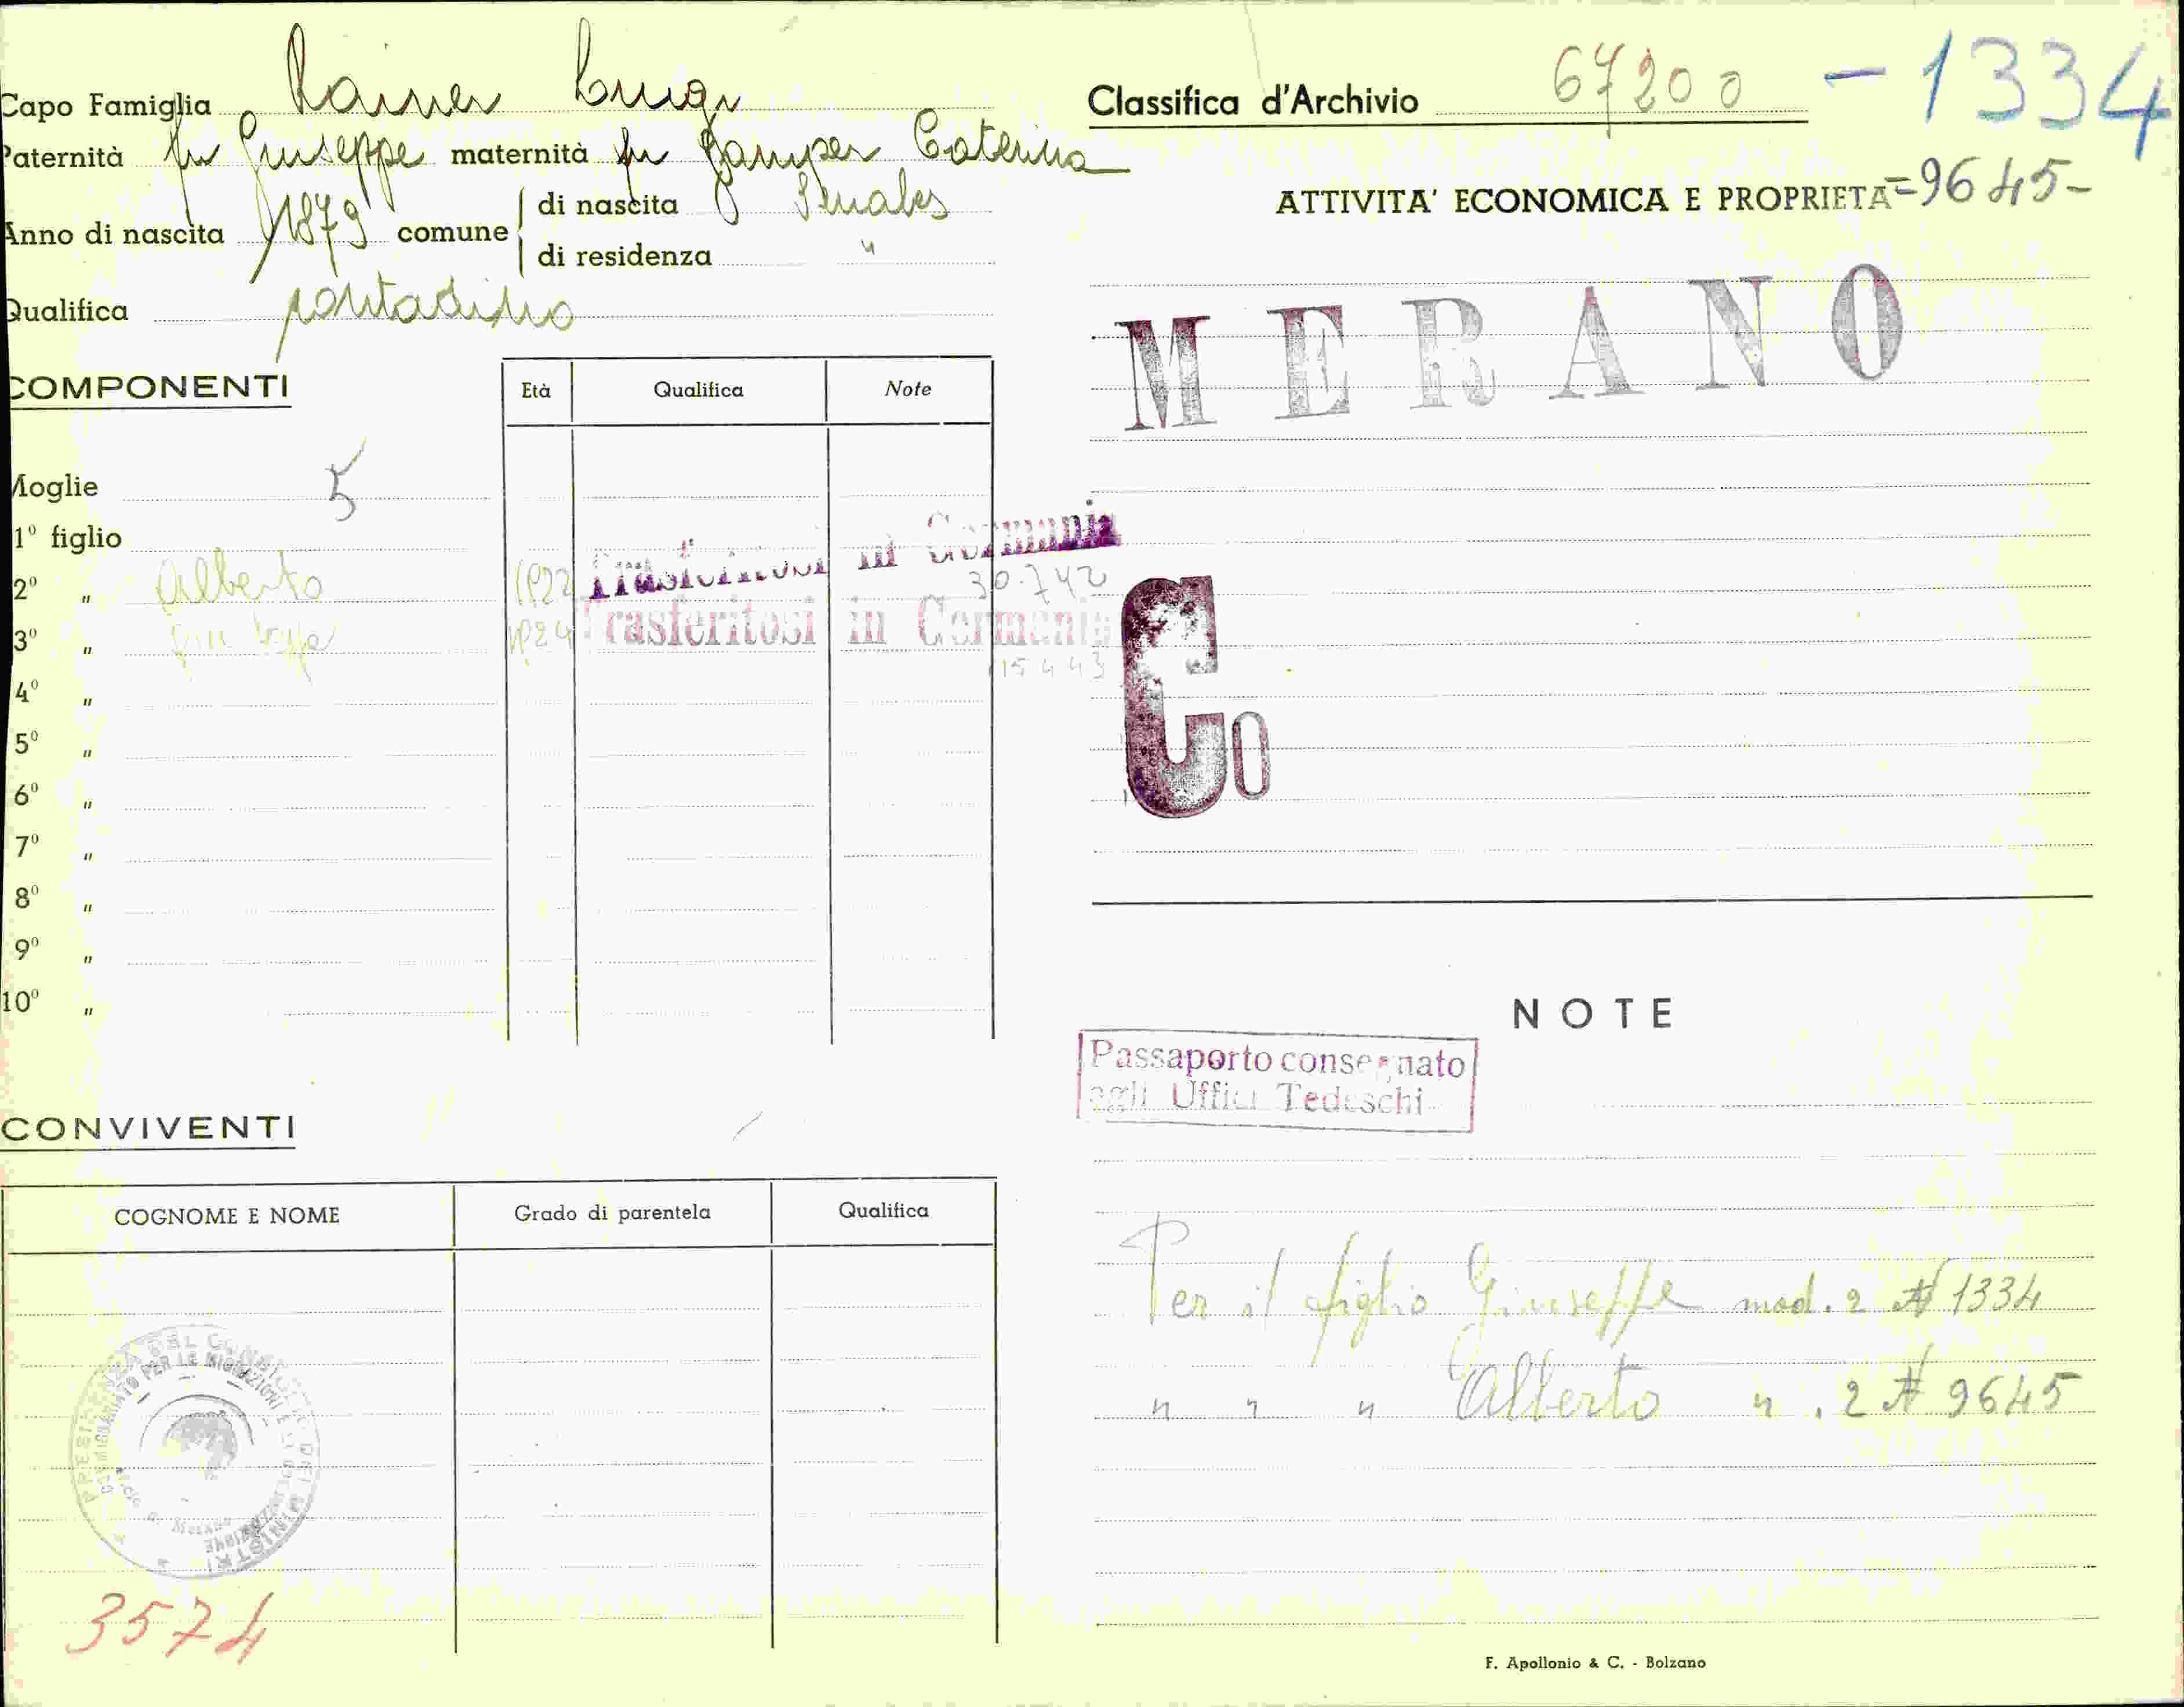 Capo Famiglia Rainer Luigi
Paternità fu Giuseppe maternità fu Gamper Caterina
Anno di nascita 1879 comune di nascita Senales
di residenza "
Qualifica contadino
COMPONENTI Età Qualifica Note
Moglie 5
1º figlio
2º " Alberto 1922 Trasferitosi in Germania
30.7.42
3º " Giuseppe 1924 Trasferitosi in Germania
15.4.43
4º "
5º "
6º "
7º "
8º "
9º "
10º "
CONVIVENTI
COGNOME E NOME Grado di parentela Qualifica
PRESIDENZA DEL CONSIGLIO DEI MINISTRI
COMMISSARIATO PER LE MIGRAZIONI E LA COLONIZZAZIONE
3574
Classifica d'Archivio 67200 - 1334
ATTIVITA' ECONOMICA E PROPRIETA' =9645-
MERANO
Co
NOTE
Passaporto consegnato
agli Uffici Tedeschi
Per il figlio Giuseppe mod. 2 N 1334
" " " Alberto " . 2 N 9645
F. Apollonio & C. - Bolzano